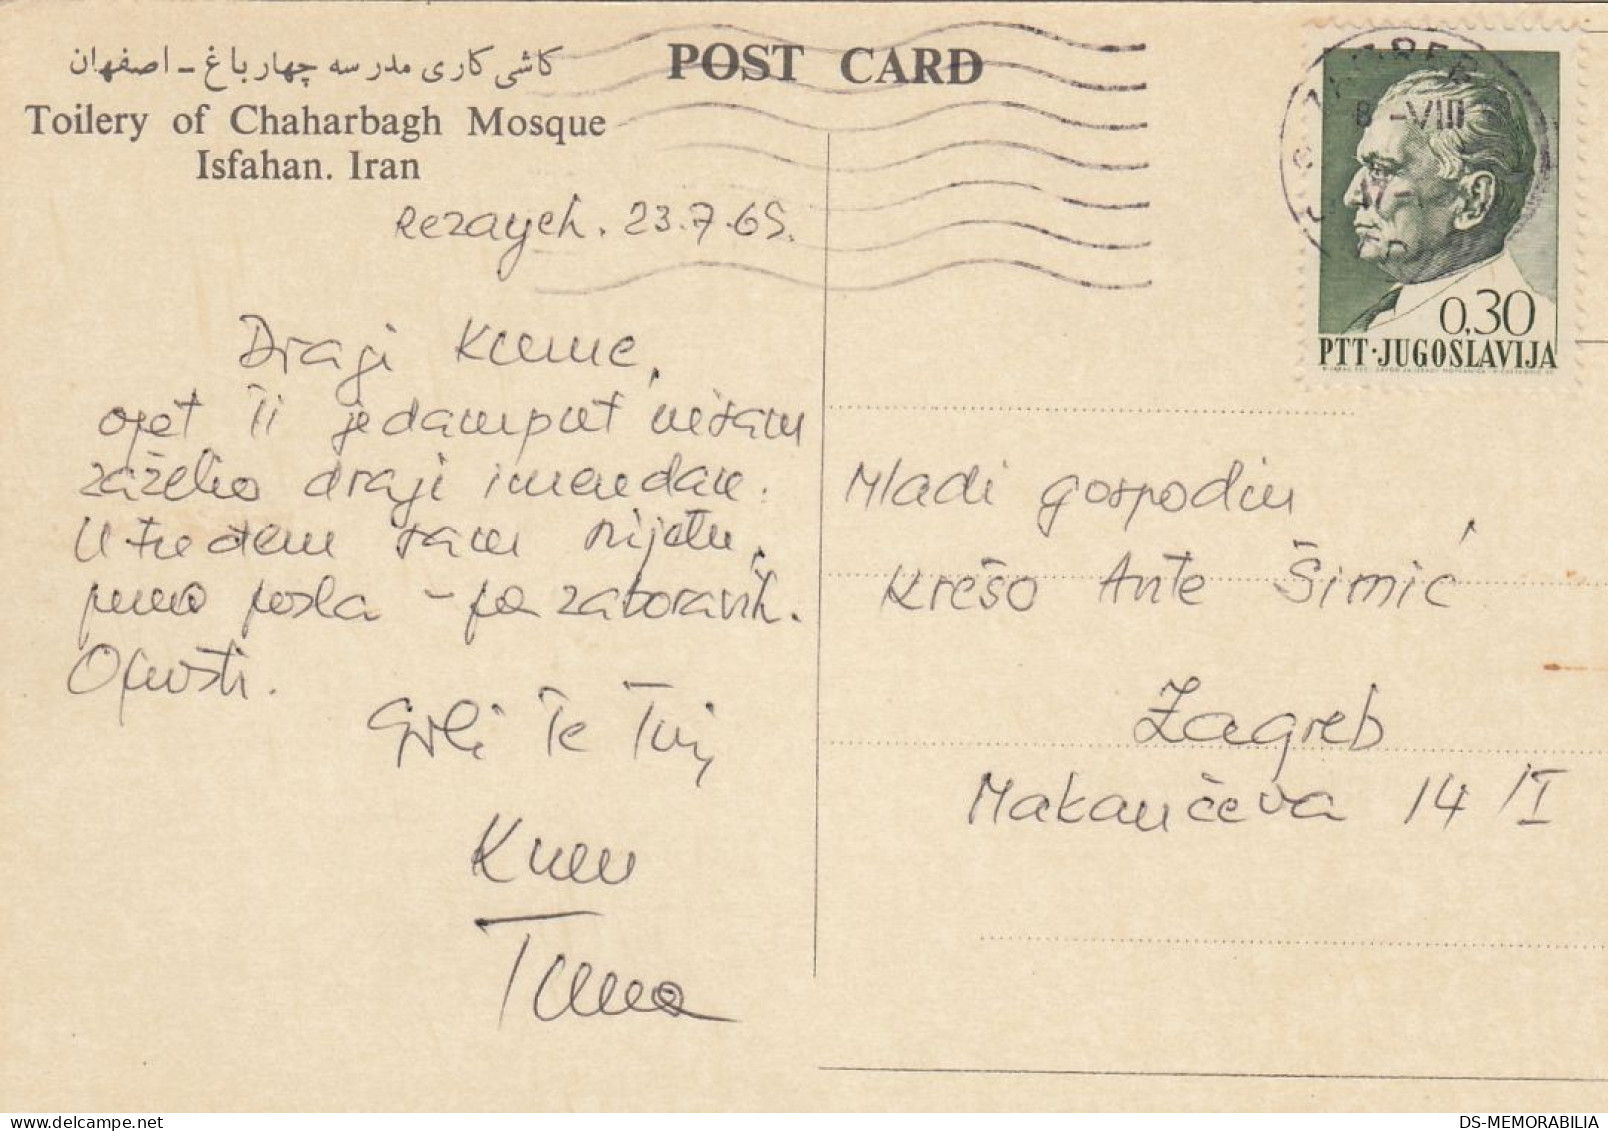 کاشی کاری مدرسه چهارباغ - اصفهان
Toilery of Chaharbagh Mosque
Isfahan. Iran
POST CARD
Rezayeh. 23.7.69.
Dragi Kume,
opet ti jedamput nisam
zaželio dragi imendan.
U tuđem sam svijetu,
puno posla - pa zaboravih.
Oprosti.
Grli Te Tvoj
Kum
ZAGREB
8-VIII
0,30
PTT·JUGOSLAVIJA
Mladi gospodin
Krešo Ante Šimić
Zagreb
Makančeva 14/I
DS-MEMORABILIA